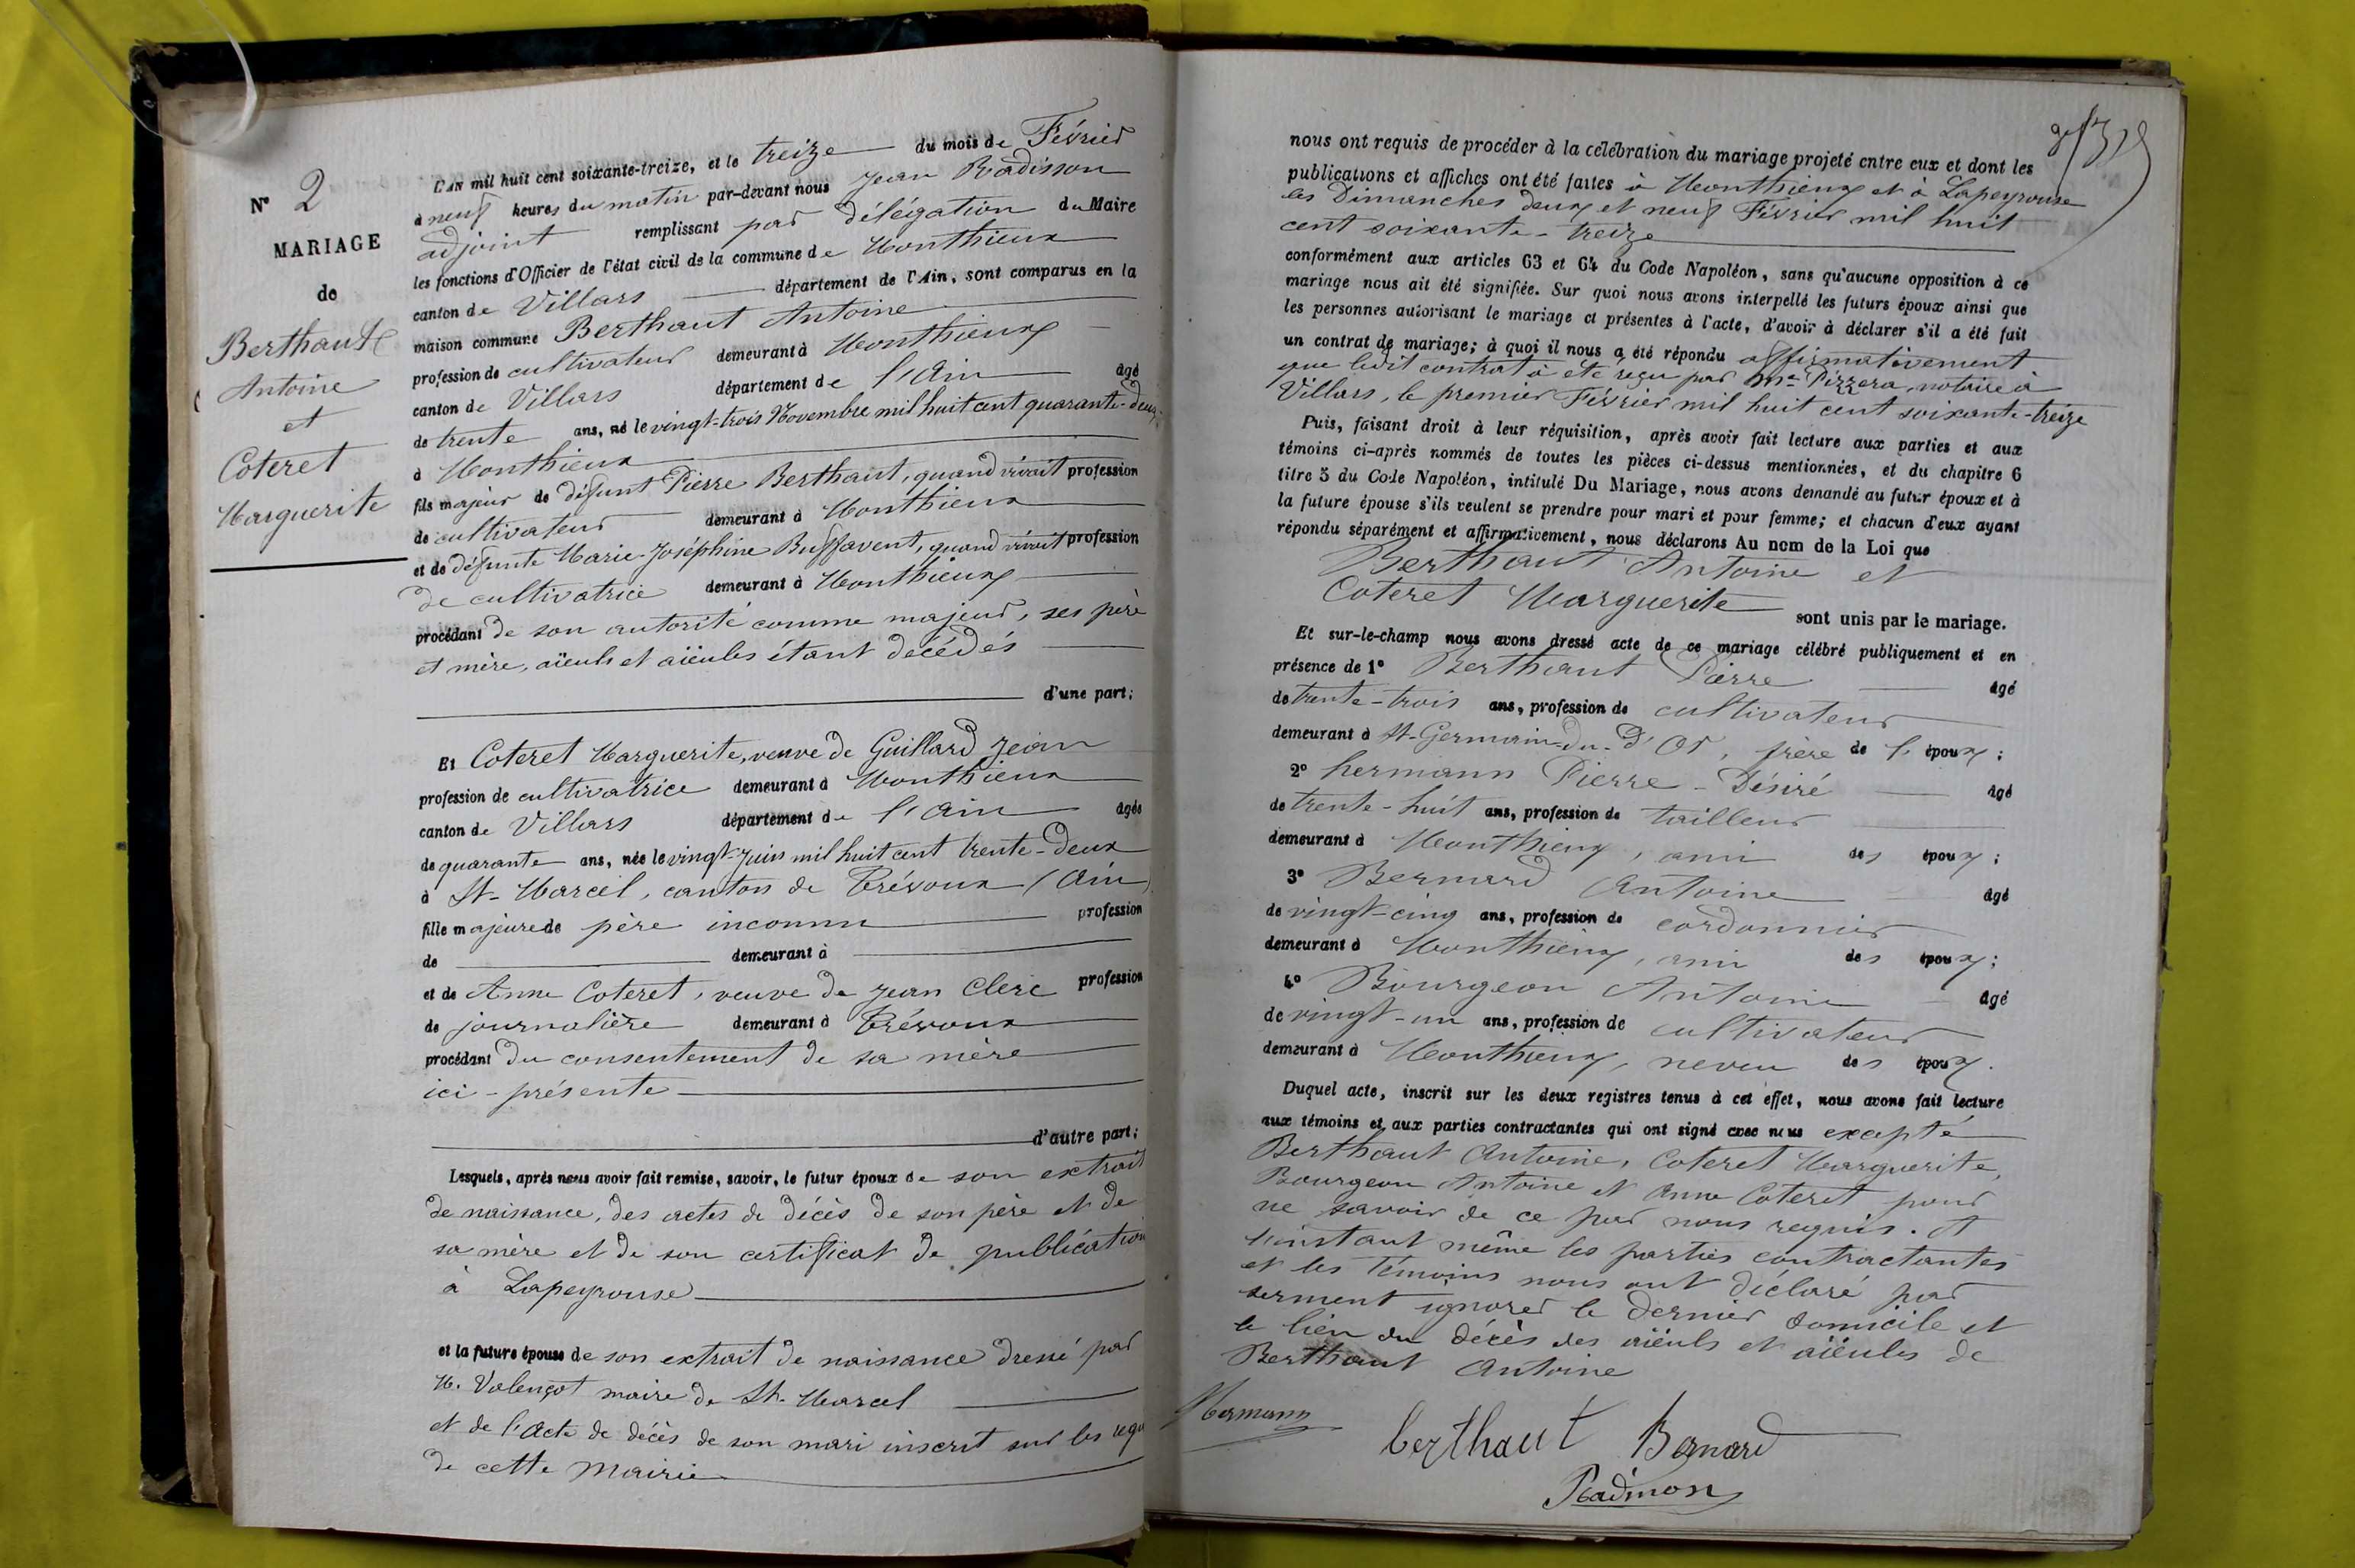 N° 2
MARIAGE
de
Berthaut
Antoine
et
Coteret
Marguerite
L'AN mil huit cent soixante-treize, et le treize du mois de Février
à neuf heures du matin par-devant nous Jean Radisson
adjoint remplissant par délégation du Maire
les fonctions d'Officier de l'état civil de la commune de Monthieux
canton de Villars département de l'Ain, sont comparus en la
maison commune Berthaut Antoine
profession de cultivateur demeurant à Monthieux
canton de Villars département de l'Ain âgé
de trente ans, né le vingt-trois Novembre mil huit cent quarante-deux
à Monthieux
fils majeur de défunt Pierre Berthaut, quand vivait profession
de cultivateur demeurant à Monthieux
et de défunte Marie-Joséphine Buffavent, quand vivait profession
de cultivatrice demeurant à Monthieux
procédant de son autorité comme majeur, ses père
et mère, aïeuls et aïeules étant décédés
d'une part;
Et Coteret Marguerite, veuve de Guillard Jean
profession de cultivatrice demeurant à Monthieux
canton de Villars département de l'Ain âgée
de quarante ans, née le vingt-Juin mil huit cent trente-deux
à St-Marcel, canton de Trévoux (Ain)
fille majeure de père inconnu profession
de demeurant à
et de Anne Coteret, veuve de Jean Clerc profession
de journalière demeurant à Trévoux
procédant du consentement de sa mère
ici-présente
d'autre part;
Lesquels, après nous avoir fait remise, savoir, le futur époux de son extrait
de naissance, des actes de décès de son père et de
sa mère et de son certificat de publication
à Lapeyrouse
et la future épouse de son extrait de naissance dressé par
M. Valençot maire de St-Marcel
et de l'acte de décès de son mari inscrit sur les
de cette Mairie
nous ont requis de procéder à la célébration du mariage projeté entre eux et dont les
publications et affiches ont été faites à Monthieux et à Lapeyrouse
les Dimanches deux et neuf Février mil huit
cent soixante-treize
conformément aux articles 63 et 64 du Code Napoléon, sans qu'aucune opposition à ce
mariage nous ait été signifiée. Sur quoi nous avons interpellé les futurs époux ainsi que
les personnes autorisant le mariage et présentes à l'acte, d'avoir à déclarer s'il a été fait
un contrat de mariage; à quoi il nous a été répondu affirmativement
que ledit contrat a été reçu par Me Pizzera, notaire à
Villars, le premier Février mil huit cent soixante-treize
Puis, faisant droit à leur réquisition, après avoir fait lecture aux parties et aux
témoins ci-après nommés de toutes les pièces ci-dessus mentionnées, et du chapitre 6
titre 5 du Code Napoléon, intitulé Du Mariage, nous avons demandé au futur époux et à
la future épouse s'ils veulent se prendre pour mari et pour femme; et chacun d'eux ayant
répondu séparément et affirmativement, nous déclarons Au nom de la Loi que
Berthaut Antoine et
Coteret Marguerite sont unis par le mariage.
Et sur-le-champ nous avons dressé acte de ce mariage célébré publiquement et en
présence de 1° Berthaut Pierre âgé
de trente-trois ans, profession de cultivateur
demeurant à St-Germain-du-d'Or, frère de l' époux;
2° hermann Pierre-Désiré âgé
de trente-huit ans, profession de tailleur
demeurant à Monthieux, ami des époux;
3° Bernard Antoine âgé
de vingt-cinq ans, profession de cordonnier
demeurant à Monthieux, ami des époux;
4° Bourgeon Antoine âgé
de vingt-un ans, profession de cultivateur
demeurant à Monthieux, neveu des époux.
Duquel acte, inscrit sur les deux registres tenus à cet effet, nous avons fait lecture
aux témoins et aux parties contractantes qui ont signé avec nous excepté
Berthaut Antoine, Coteret Marguerite,
Bourgeon Antoine et Anne Coteret pour
ne savoir de ce par nous requis. Et
l'instant même les parties contractantes
et les témoins nous ont déclaré par
serment ignorer le dernier domicile et
le lieu du décès des aïeuls et aïeules de
Berthaut Antoine
Hermann
berthaut Bernard
Radisson